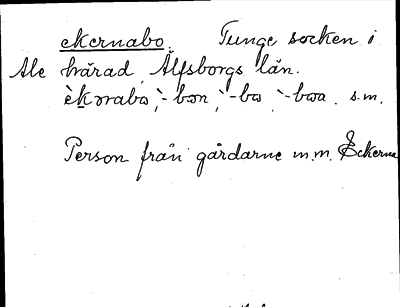 ekernabo. Tunge socken i
Ale härad Älfsborgs län.
èkɔrabo, `-bɔn, `-bɷ `-bɷa. s.m.
Person från gårdarne m.m. Eckerna